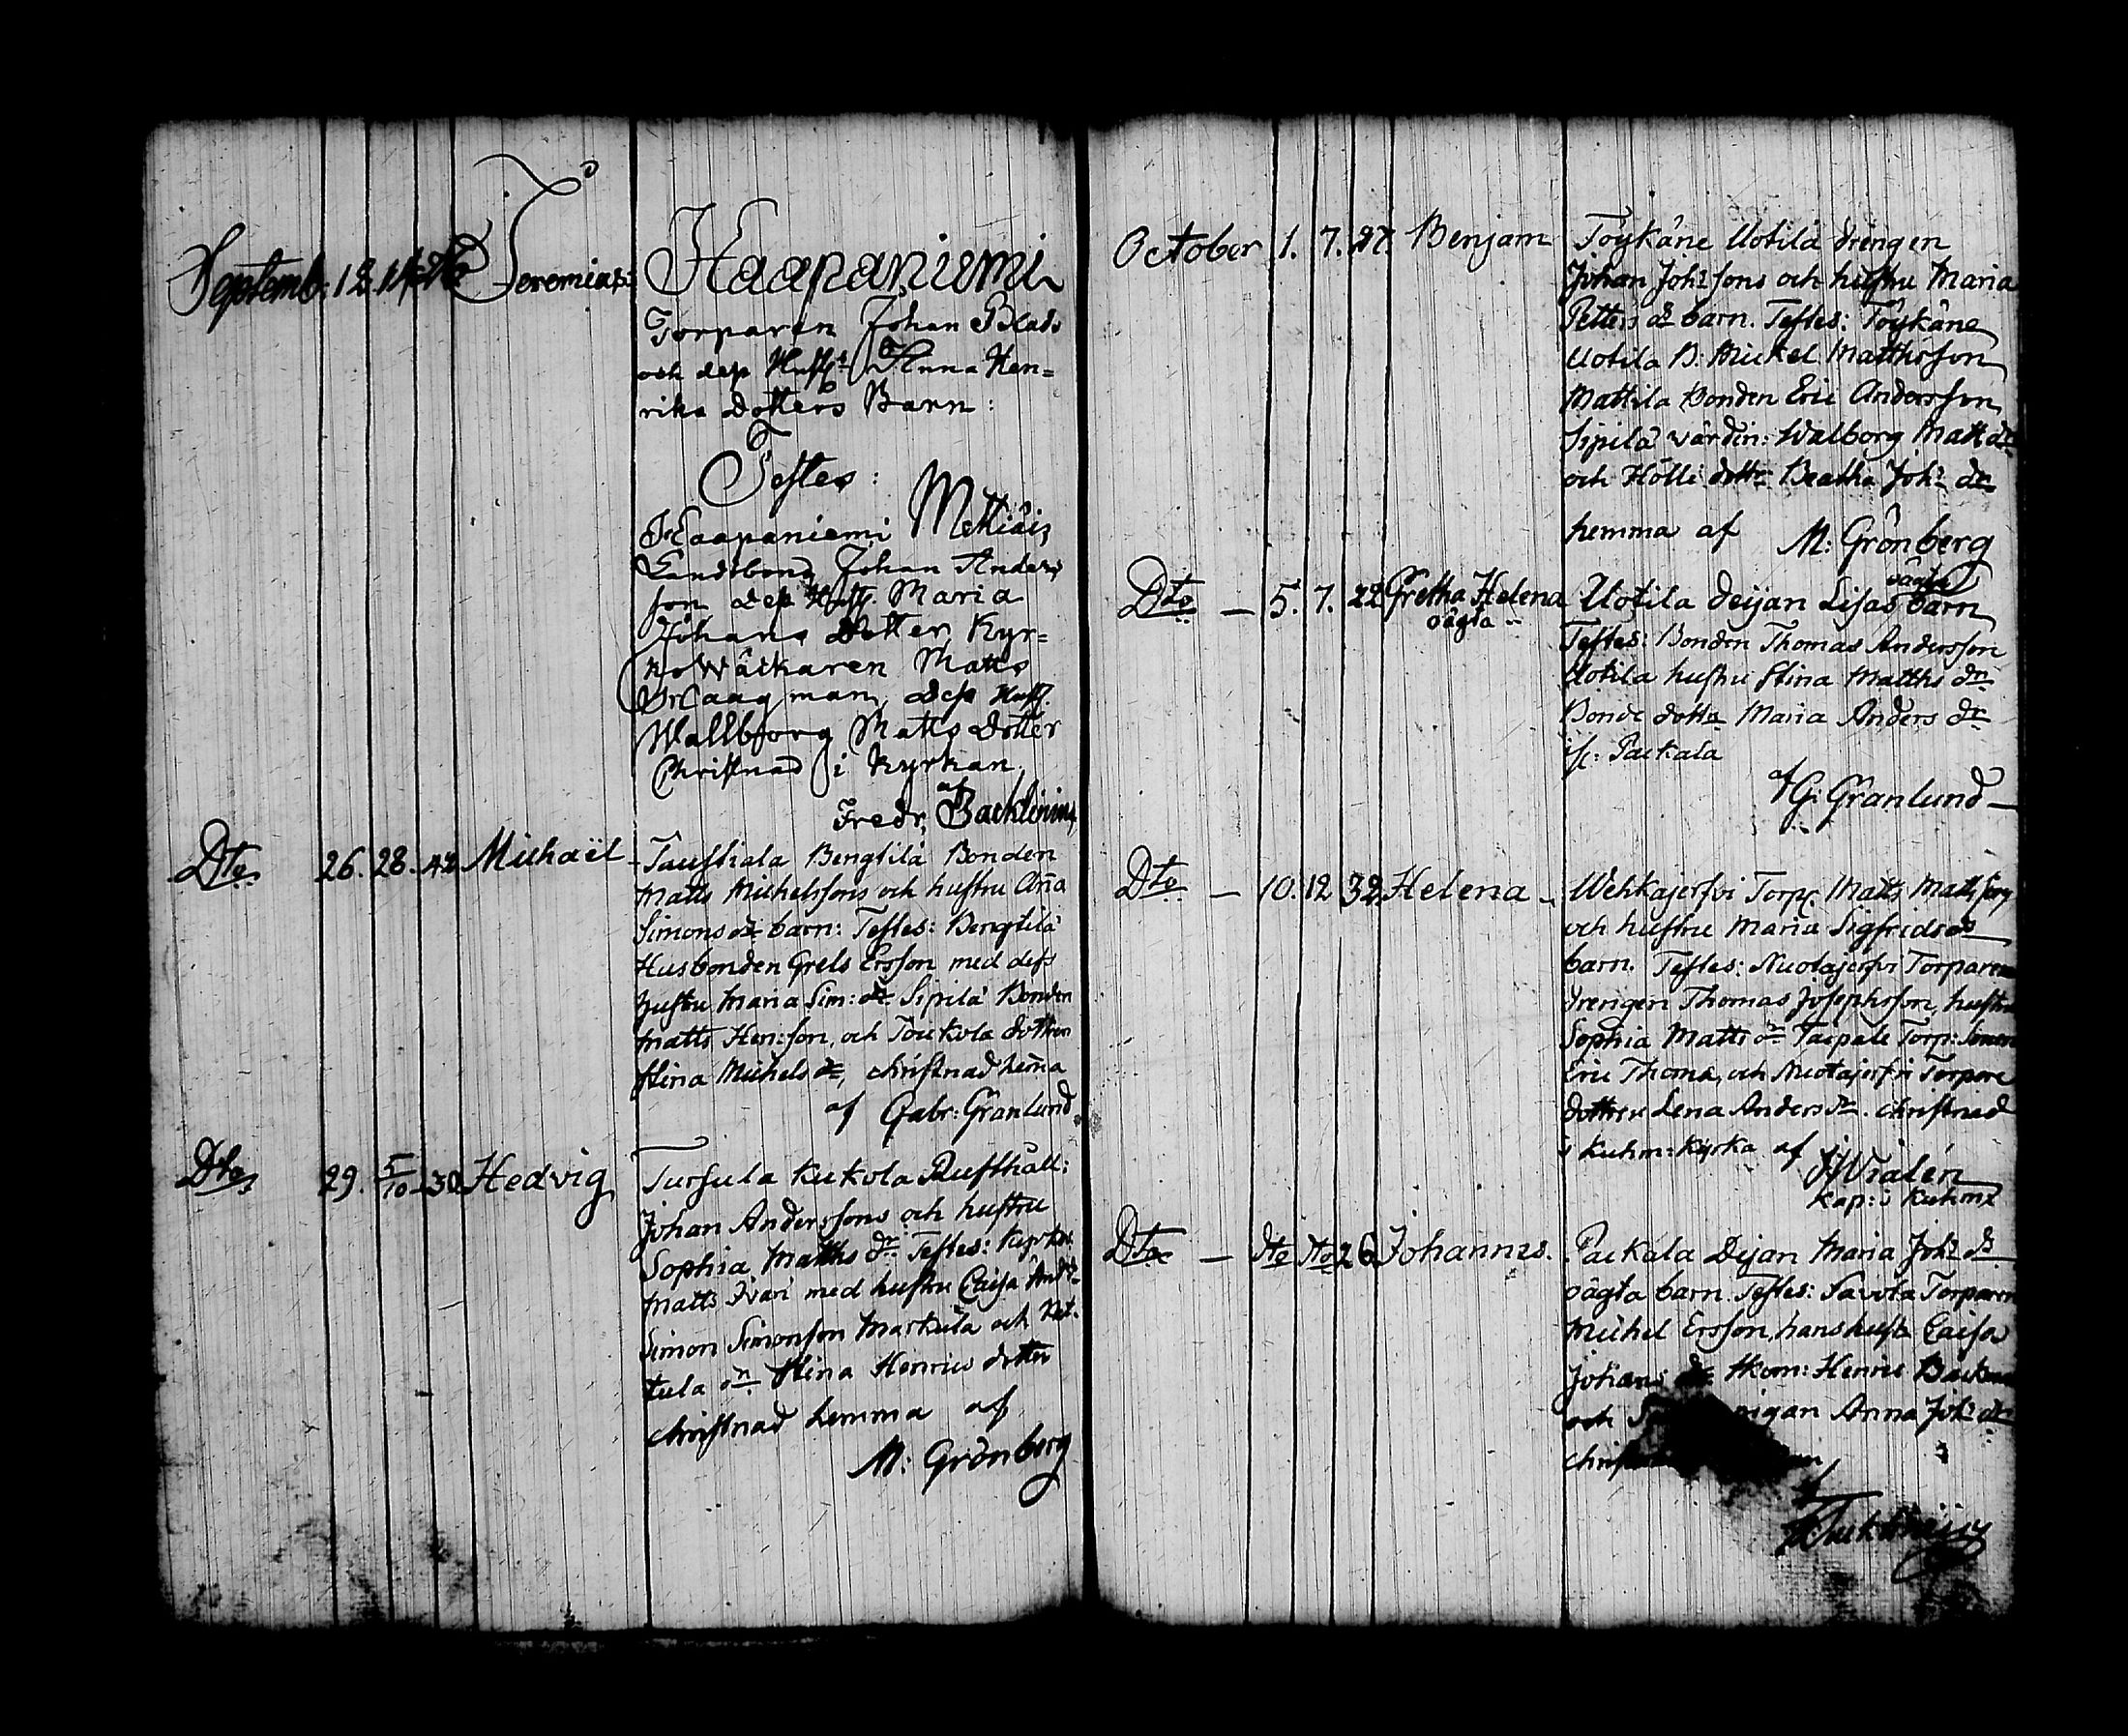 Septemb: 12. 14. Jeremias:
Haapaniemi
Torparen Johan Blads
och dess Hust: Anna Hen=
rika Dotters Barn:
Testes:
Haapaniemi Mattiais
Landbond Johan Anders
son dess Hust. Maria
Johans Dotter Kyr=
kowäckaren Matts
Haagman, dess Hust.
Wallborg Matts Dotter
Christnad i Kyrkan
af
Fredr,
Dto 26. 28. 42 Michaël
Taustiala Bengtilä Bonden
Matts Michelssons och hustru Aña
Simons dr barn: Testes: Bengtilä
Husbonden Grels Ersson med dess
hustru Maria Sim: dr Sipilä Bonden
Matts Hen:son, och Toukola dottren
Stina Michels dr, christnad hem̄a
af Gabr: Granlund
Dto 29. 5/10 30 Hedvig
Tursula Kukola Rusthåll:
Johan Anderssons och hustru
Sophia Matths dr Testes:
Matts Ivari med hustru Caisa And:
Simon Simonson Markula och
tula dr Stina Henrics dotter
christnad hemma af
M: Grönberg
October 1. 7. 27. Benjam
Töykäne Uotila drengen
Johan Joh: sons och hustru Maria
Petters dr barn. Testes: Töykäne
Uotila B: Mickel Matthsson
Mattila Bonden Eric Andersson
Sipilä värdin: Walborg Matt dr
och Holli dottr Beatha Joh: dr
hemma af M: Grönberg
Dto — 5. 7. 22 Gretha Helena
oägta
oägta
Uotila deijan Lisas barn
Testes: Bonden Thomas Andersson
Uotila hustru Stina Matths dr
Bonde dottr Maria Anders dr
Packala
af G: Granlund —
Dto — 10. 12 32 Helena
Wehkajerfvi Torp: Matts Matts son
och hustru Maria Sigfrids dr
barn. Testes: Nuotajerfvi Torparen
drengen Thomas Josephsson, hustru
Sophia Matts dr Taipale Torp:
Eric Thomas, och Nuotajerfvi Torpare
dottren Lena Anders dr. christnad
i Kuhm: Kyrka af
J: Wialén
Kap: i Kuhm:
Dto — dto dto 26 Johannes.
Packala Dejan Maria Joh: dr
oägta barn. Testes: Savola Torparen
Michel Ersson, hans hust: Caisa
Johans dr Skom: Henric Backman
och pigan Anna Joh: dr
af